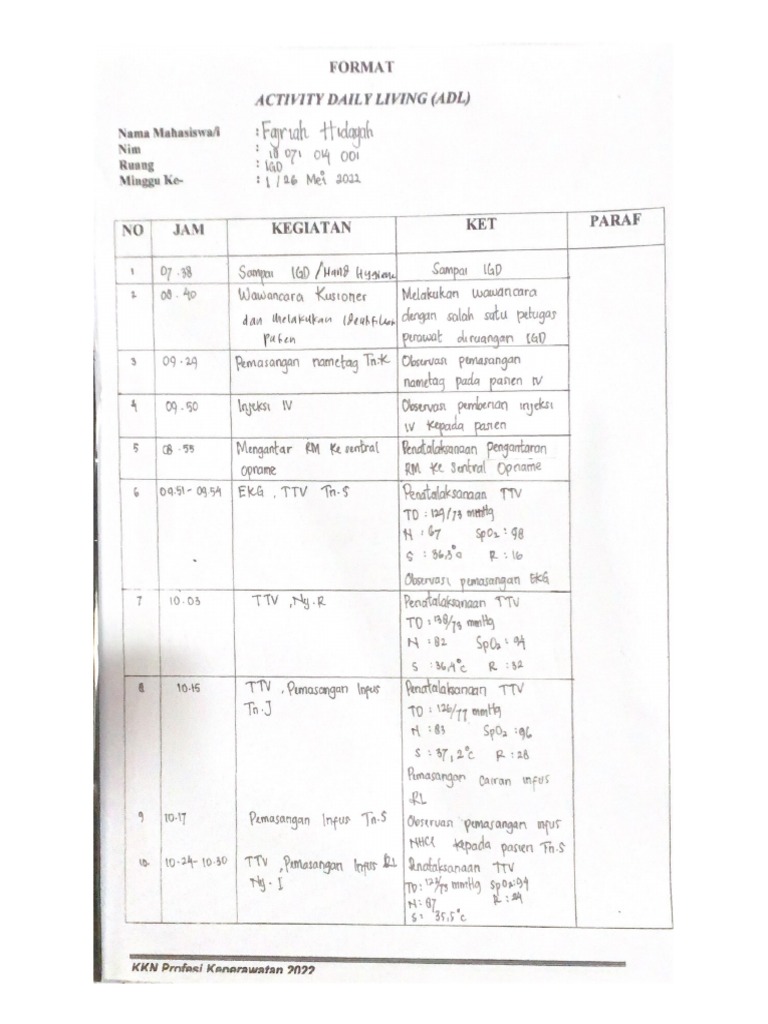 FORMAT
ACTIVITY DAILY LIVING (ADL)
Nama Mahasiswa/i : Fajriah Hidayah
Nim : 18 071 014 001
Ruang : IGD
Minggu Ke- : 1 / 26 Mei 2022
NO JAM KEGIATAN KET PARAF
1 07.38 Sampai IGD / Hand Hygiene Sampai IGD
2 08.40 Wawancara Kusioner Melakukan wawancara
dan melakukan dengan salah satu petugas
pasien perawat diruangan IGD
3 09.29 Pemasangan nametag Tn.K Observasi pemasangan
nametag pada pasien IV
4 09.50 Injeksi IV Observasi pemberian injeksi
IV kepada pasien
5 08.55 Mengantar RM ke sentral Penatalaksanaan Pengantaran
opname RM ke Sentral Opname
6 09.51-09.54 EKG, TTV Tn.S Penatalaksanaan TTV
TD : 129/73 mmHg
N : 67 SpO2 : 98
S : 36,3° R : 16
Observasi pemasangan EKG
7 10.03 TTV, Ny.R Penatalaksanaan TTV
TD : 138/73 mmHg
N : 82 SpO2 : 94
S : 36,4°c R : 32
8 10.15 TTV, Pemasangan Infus Penatalaksanaan TTV
Tn.J TD : 126/77 mmHg
N : 83 SpO2 : 96
S : 37,2°c R : 28
Pemasangan Cairan infus
RL
9 10.17 Pemasangan Infus Tn.S Observasi pemasangan infus
kepada pasien Tn.S
10 10.24-10.30 TTV, Pemasangan Infus RL Penatalaksanaan TTV
Ny.I TD : 123/73 mmHg SpO2:94
N : 87 R : 24
S : 35,5°c
KKN Profesi Keperawatan 2022